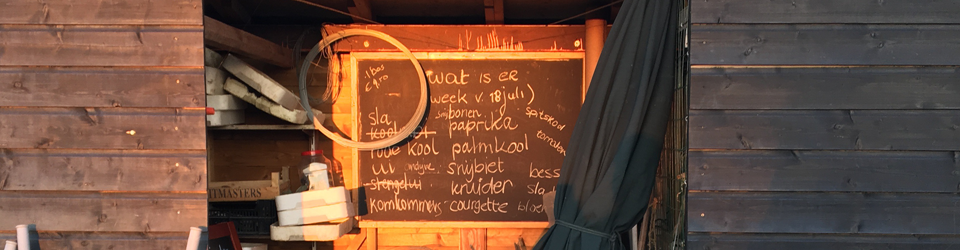 1 bos
wat is er
week v. 18 juli)
sla snijbonen spitskool
koolrabi paprika tomaten
rode kool palmkool
ui andijvie snijbiet bess
stengelui kruiden sla
komkommers courgette bloem
TMASTERS